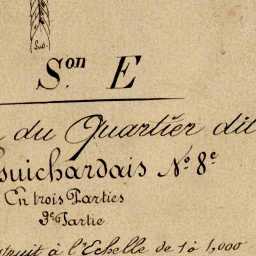 Sud
S.on E
du Quartier dit
Guichardais No. 8e
En trois Parties
3e Partie
à l'Echelle de 1 à 1,000